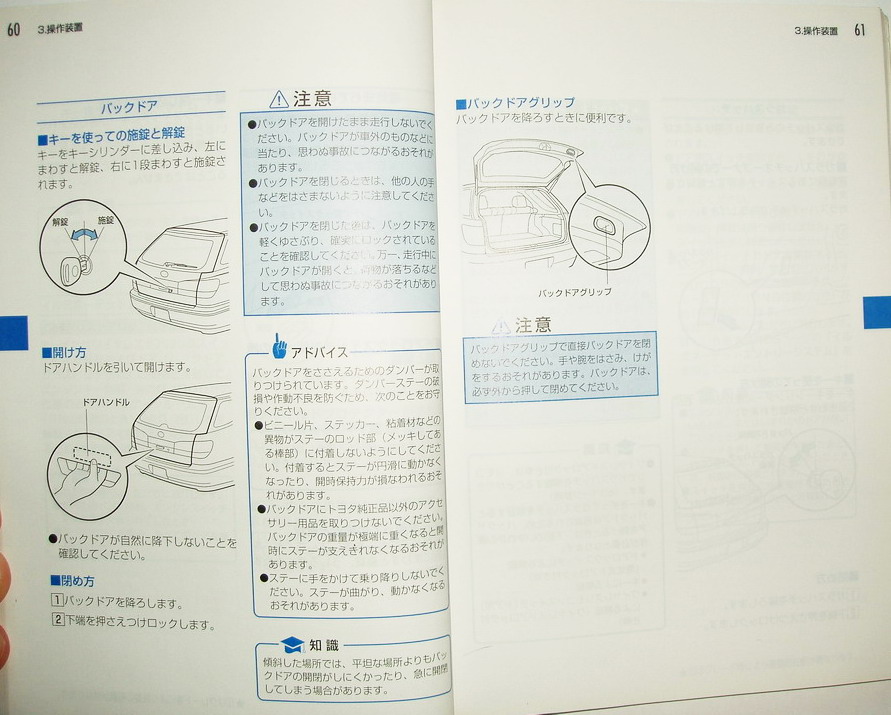 60
3.操作装置
バックドア
■キーを使っての施錠と解錠
キーをキーシリンダーに差し込み、左に
まわすと解錠、右に1段まわすと施錠さ
れます。
解錠
施錠
■開け方
ドアハンドルを引いて開けます。
ドアハンドル
●バックドアが自然に降下しないことを
確認してください。
■閉め方
1 バックドアを降ろします。
2 下端を押さえつけロックします。
注意
●バックドアを開けたまま走行しないでく
ださい。バックドアが車外のものなどに
当たり、思わぬ事故につながるおそれが
あります。
●バックドアを閉じるときは、他の人の手
などをはさまないように注意してくださ
い。
●バックドアを閉じた後は、バックドアを
軽くゆさぶり、確実にロックされている
ことを確認してください。万一、走行中に
バックドアが開くと、荷物が落ちるなど
して思わぬ事故につながるおそれがあり
ます。
アドバイス
バックドアをささえるためのダンパーが取
りつけられています。ダンパーステーの破
損や作動不良を防ぐため、次のことをお守
りください。
●ビニール片、ステッカー、粘着材などの
異物がステーのロッド部(メッキしてあ
る棒部)に付着しないようにしてくださ
い。付着するとステーが円滑に動かなく
なったり、開時保持力が損なわれるおそ
れがあります。
●バックドアにトヨタ純正品以外のアクセ
サリー用品を取りつけないでください。
バックドアの重量が極端に重くなると開
時にステーが支えきれなくなるおそれが
あります。
●ステーに手をかけて乗り降りしないでく
ださい。ステーが曲がり、動かなくなる
おそれがあります。
知識
傾斜した場所では、平坦な場所よりもバッ
クドアの開閉がしにくかったり、急に開閉
してしまう場合があります。
3.操作装置
61
■バックドアグリップ
バックドアを降ろすときに便利です。
バックドアグリップ
注意
バックドアグリップで直接バックドアを閉
めないでください。手や腕をはさみ、けが
をするおそれがあります。バックドアは、
必ず外から押して閉めてください。